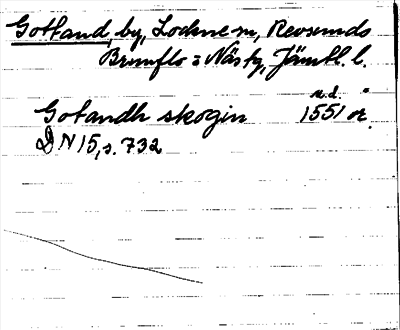 Gottand, by, Lockne sn, Revsunds
Brunflo o Näs tg, Jämtl. l.
n.d.
Gotandh skogin 1551 or.
DN 15, s. 732